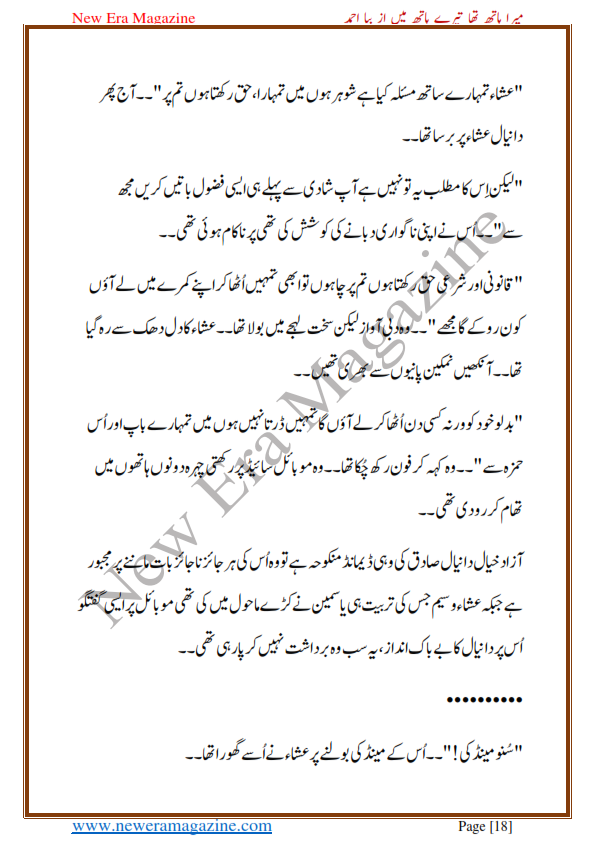 New Era Magazine
میرا ہاتھ تھا تیرے ہاتھ میں از ببا احمد
"عشاء تمہارے ساتھ مسئلہ کیا ہے شوہر ہوں میں تمہارا، حق رکھتا ہوں تم پر"۔۔ آج پھر
دانیال عشاء پر برسا تھا۔۔
"لیکن اِس کا مطلب یہ تو نہیں ہے آپ شادی سے پہلے ہی ایسی فضول باتیں کریں مجھ
سے"۔۔ اُس نے اپنی ناگواری دبانے کی کوشش کی تھی پر ناکام ہوئی تھی۔۔
"قانونی اور شرعی حق رکھتا ہوں تم پر چاہوں تو ابھی تمہیں اُٹھا کر اپنے کمرے میں لے آؤں
کون روکے گا مجھے"۔۔ وہ دبی آواز لیکن سخت لہجے میں بولا تھا۔۔ عشاء کا دل دھک سے رہ گیا
تھا۔۔ آنکھیں نمکین پانیوں سے بھری تھیں۔۔
"بدلو خود کو ورنہ کسی دن اُٹھا کر لے آؤں گا تمہیں ڈرتا نہیں ہوں میں تمہارے باپ اور اُس
حمزہ سے"۔۔ وہ کہہ کر فون رکھ چُکا تھا۔۔ وہ موبائل سائیڈ پر رکھتی چہرہ دونوں ہاتھوں میں
تھام کر رو دی تھی۔۔
آزاد خیال دانیال صادق کی وہی ڈیمانڈ منکوحہ ہے تو وہ اُس کی ہر جائز ناجائز بات ماننے پر مجبور
ہے جبکہ عشاء وسیم جس کی تربیت ہی یاسمین نے کڑے ماحول میں کی تھی موبائل پر ایسی گفتگو
اُس پر دانیال کا بے باک انداز، یہ سب وہ برداشت نہیں کر پا رہی تھی۔۔
••••••••••
"سُنو مینڈکی!"۔۔ اُس کے مینڈکی بولنے پر عشاء نے اُسے گھورا تھا۔۔
New Era Magazine
www.neweramagazine.com
Page [18]